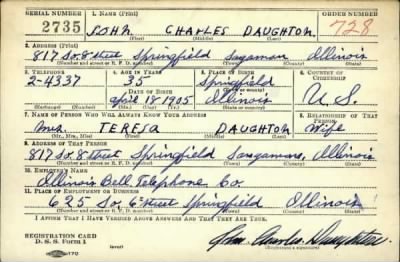 SERIAL NUMBER 1. NAME (Print) ORDER NUMBER
2735 JOHN CHARLES DAUGHTON 728
(First) (Middle) (Last)
2. ADDRESS (Print)
817 So. 8 Street Springfield Sangamon Illinois
(Number and street or R. F. D. number) (Town) (County) (State)
3. TELEPHONE 4. AGE IN YEARS 5. PLACE OF BIRTH 6. COUNTRY OF CITIZENSHIP
2-4337 35 Springfield
DATE OF BIRTH
April 18 1905 Illinois U.S.
(Mo.) (Day) (Yr.) (State or country)
7. NAME OF PERSON WHO WILL ALWAYS KNOW YOUR ADDRESS 8. RELATIONSHIP OF THAT PERSON
Mrs. TERESA DAUGHTON Wife
(Mr., Mrs., Miss) (First) (Middle) (Last)
9. ADDRESS OF THAT PERSON
817 So. 8 Street Springfield Sangamon, Illinois
(Number and street or R. F. D. number) (Town) (County) (State)
10. EMPLOYER'S NAME
Illinois Bell Telephone Co.
11. PLACE OF EMPLOYMENT OR BUSINESS
625 So. 6th Street Springfield Illinois
(Number and street or R. F. D. number) (Town) (County) (State)
I AFFIRM THAT I HAVE VERIFIED ABOVE ANSWERS AND THAT THEY ARE TRUE.
REGISTRATION CARD
D. S. S. Form 1
(Registrant's signature)